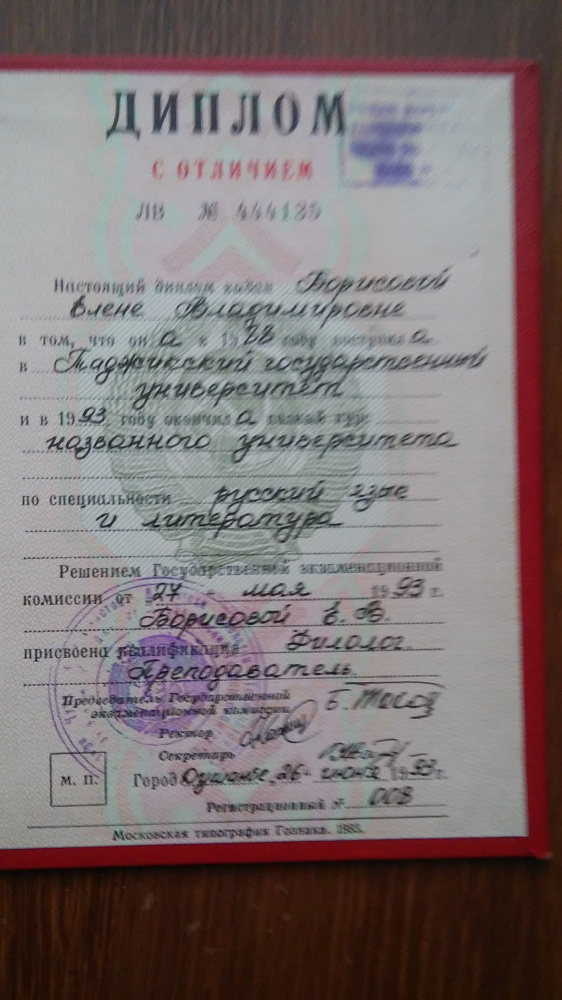 ДИПЛОМ
С ОТЛИЧИЕМ
ЛВ № 444135
Настоящий диплом выдан Борисовой
Елене Владимировне
в том, что он а в 1988 году поступил а
в Таджикский государственный
университет
и в 1993 году окончил а полный курс
названного университета
по специальности русский язык
и литература
Решением Государственной экзаменационной
комиссии от 27 мая 1993 г.
Борисовой Е. В.
присвоена квалификация Филолог.
Преподаватель.
Председатель Государственной
экзаменационной комиссии
Ректор
Секретарь
М. П.
Город Душанбе, 26 июня 1993 г.
Регистрационный № 008
Московская типография Гознака.